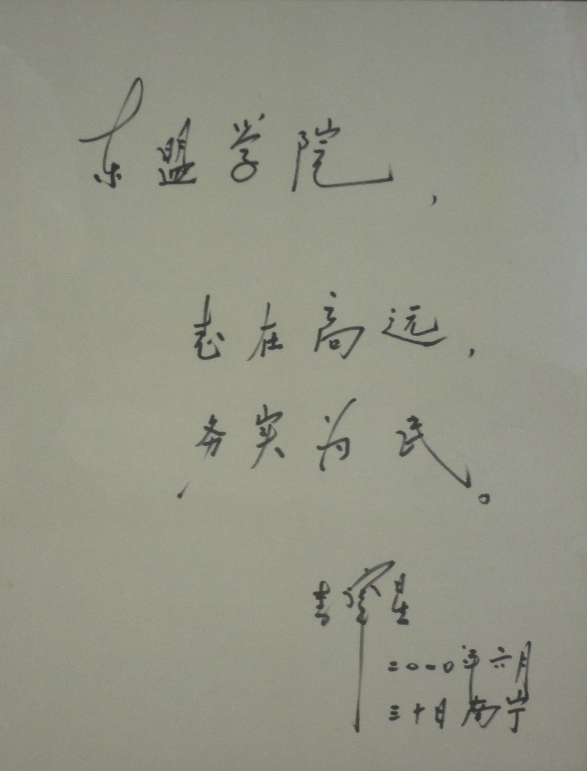 东盟学院，
志在高远，
务实为民。
二〇一〇年六月
三十日 南宁